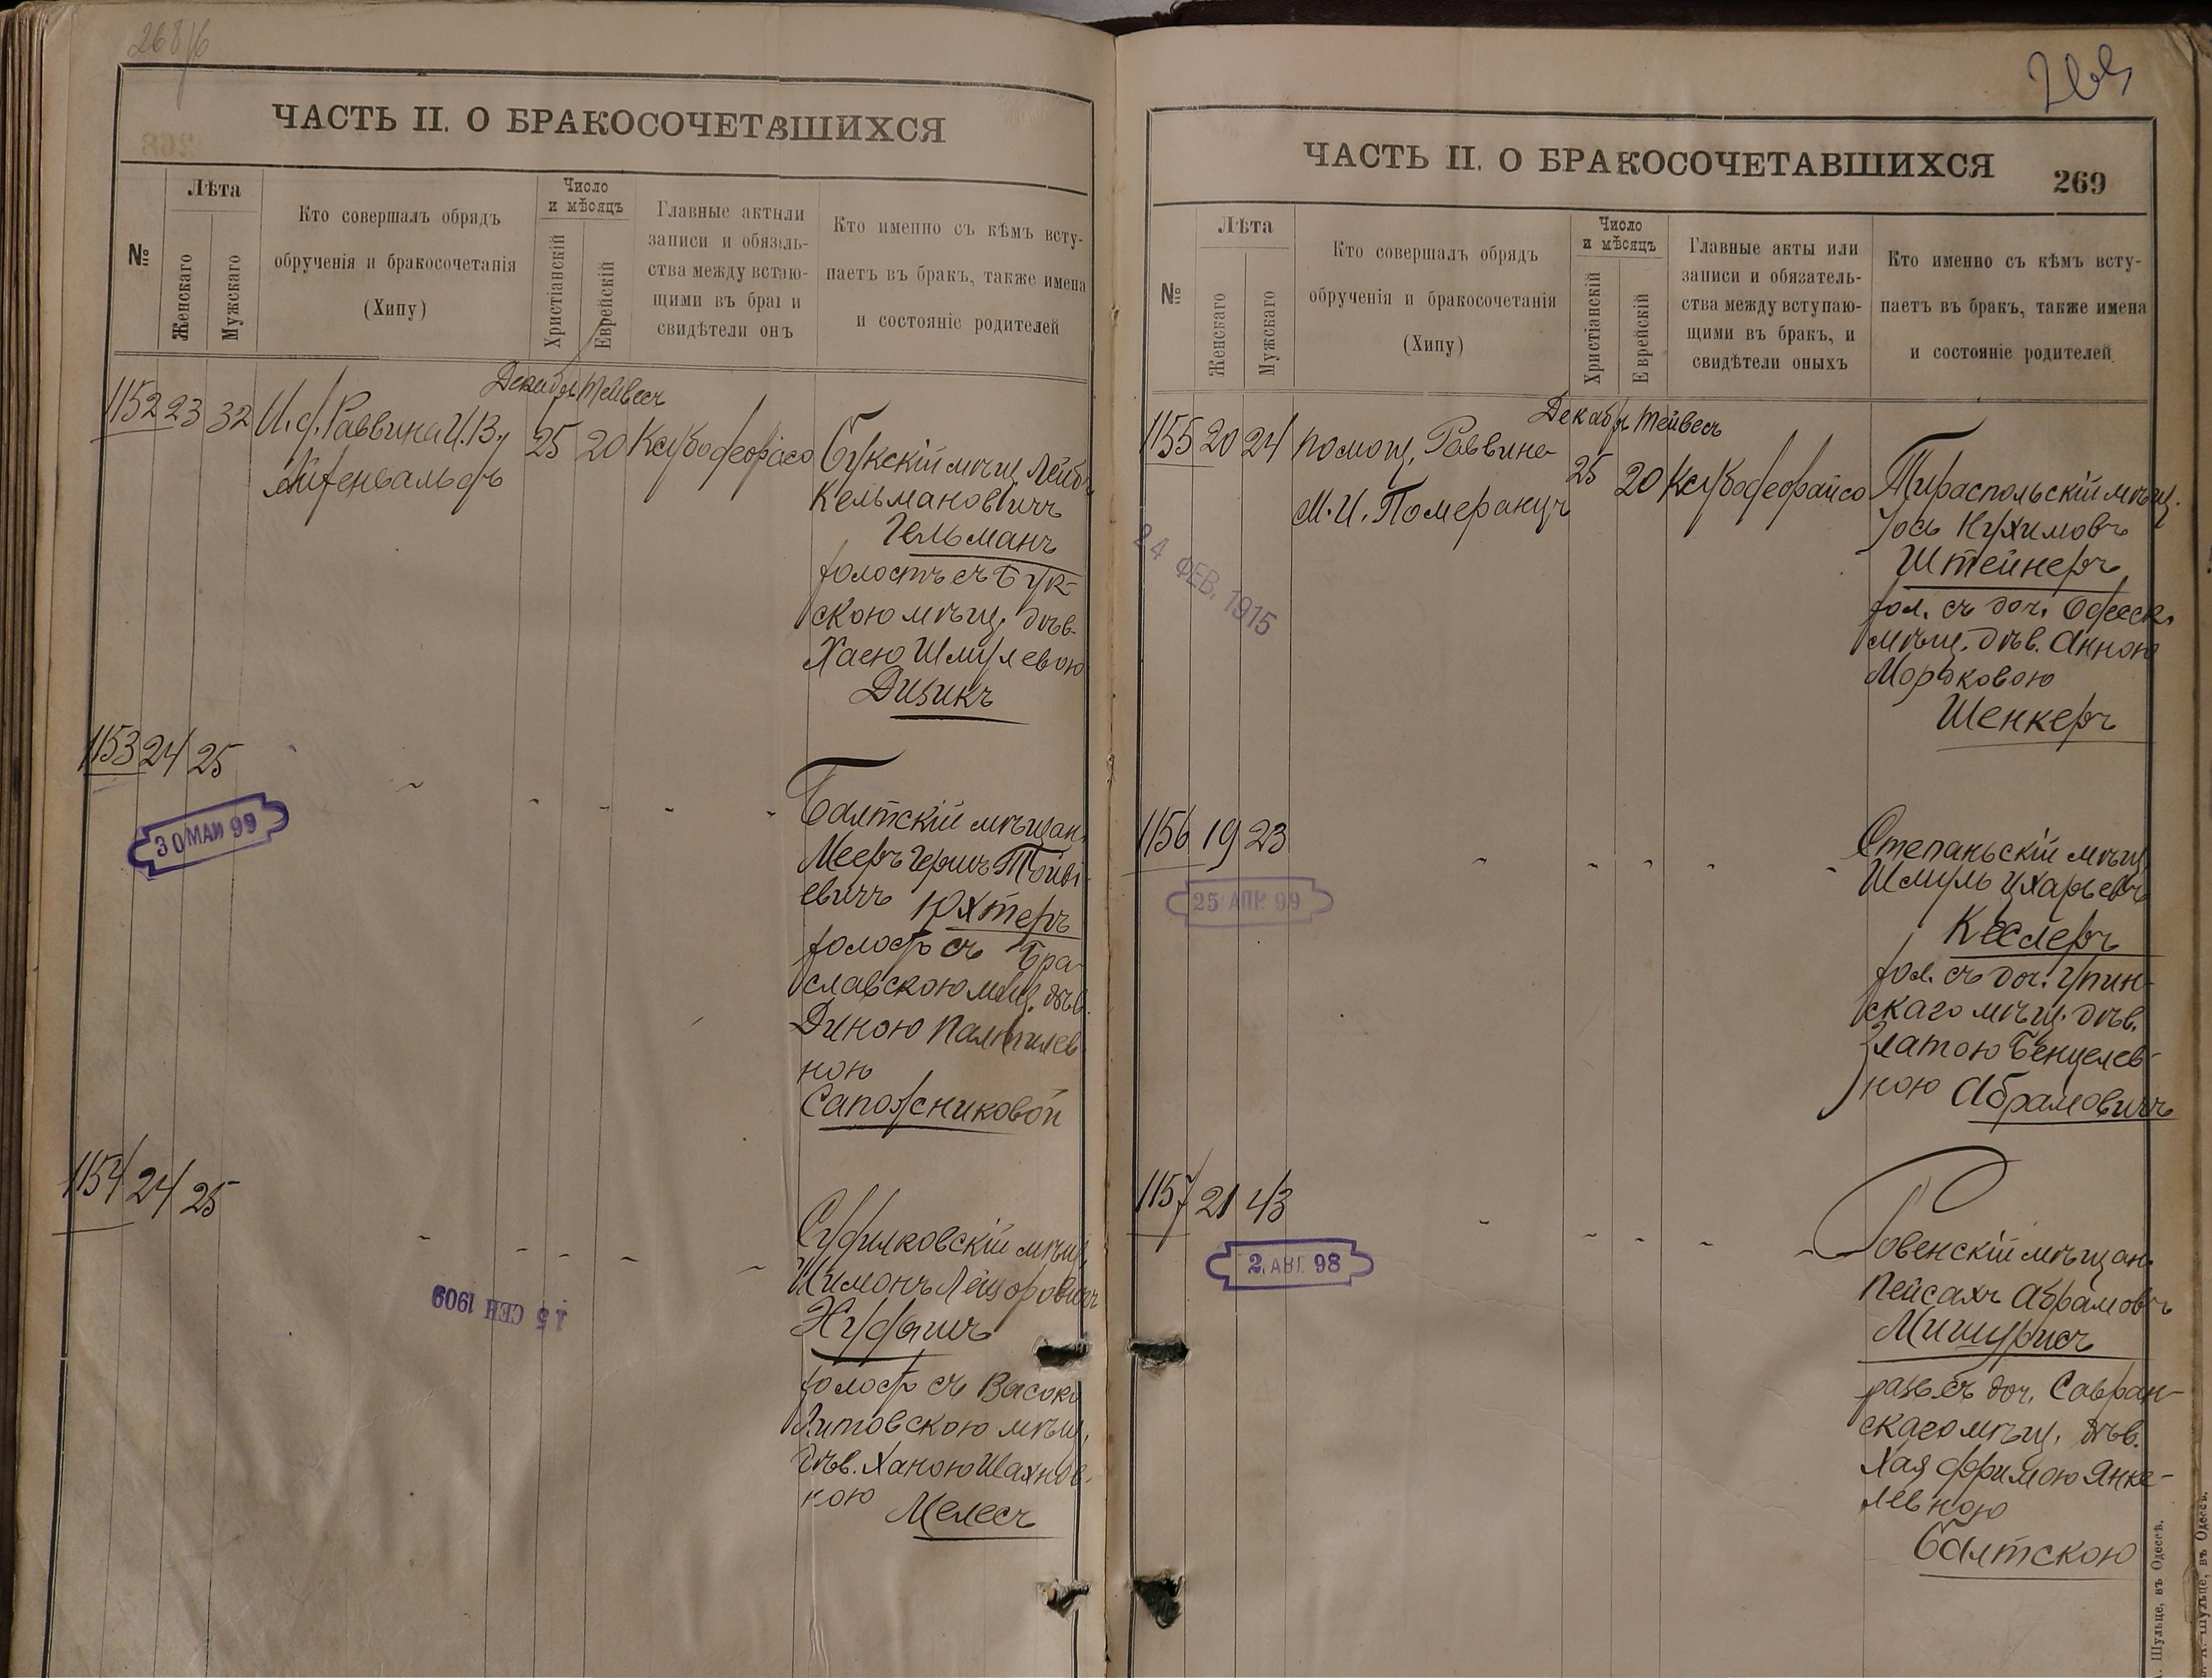 268/6
ЧАСТЬ II. О БРАКОСОЧЕТАВШИХСЯ
№
Лѣта
Женскаго
Мужскаго
Кто совершалъ обрядъ
обрученія и бракосочетанія
(Хипу)
Число
и мѣсяцъ
Христіанскій
Еврейскій
Главные акты или
записи и обязатель-
ства между вступаю-
щими въ бракъ и
свидѣтели оныхъ
Кто именно съ кѣмъ всту-
паетъ въ бракъ, также имена
и состояніе родителей
Декабрь Тейвесъ
1152 23 32 И. д. Раввина И. В.
Айзенвальдъ
25 20 Ксубо деорайсо
Букскій мѣщ. Лейб
Кельмановичъ
Гельманъ
холостъ съ Бук-
скою мѣщ. дѣв.
Хаею Шмулевою
Дизикъ
1153 24 25
30 МАИ 99
Балтскій мѣщан.
Мееръ Гершъ Тойві-
евичъ Юхтеръ
холост съ Бра-
славскою мѣщ. дѣв.
Диною Палтилев-
ною
Сапожниковой
1154 24 25
15 СЕН 1909
Судилковскій мѣщ.
Шимонъ Лейзоровичъ
холост съ Высоко
Литовскою мѣщ.
дѣв. Ханою Шахнов-
ною
Мелесъ
269
ЧАСТЬ II. О БРАКОСОЧЕТАВШИХСЯ
269
№
Лѣта
Женскаго
Мужскаго
Кто совершалъ обрядъ
обрученія и бракосочетанія
(Хипу)
Число
и мѣсяцъ
Христіанскій
Еврейскій
Главные акты или
записи и обязатель-
ства между вступаю-
щими въ бракъ, и
свидѣтели оныхъ
Кто именно съ кѣмъ всту-
паетъ въ бракъ, также имена
и состояніе родителей
Декабрь Тейвесъ
1155 20 24 помощ. Раввина
М. И. Померанцъ
25 20 Ксубо деорайсо
24 ФЕВ. 1915
Тираспольскій мѣщ.
Іось Нухимовъ
Штейнеръ
хол. съ доч. Одесск.
мѣщ. дѣв. Анною
Морьковою
Шенкеръ
1156 19 23
25 АПР. 99
Степаньскій мѣщ.
Шмуль Ихарьевъ
Кеслеръ
хол. съ доч. Упин-
скаго мѣщ. дѣв.
Златою Бенцелев-
ною Абрамовичъ
1157 21 43
2. АВГ. 98
Ровенскій мѣщан.
Пейсахъ Абрамовъ
Мишурисъ
разв. съ доч. Савран-
скаго мѣщ. дѣв.
Хая Фримою Янке-
левною
Балтскою
Шульце, въ Одессѣ.
Шульце, въ Одессѣ.